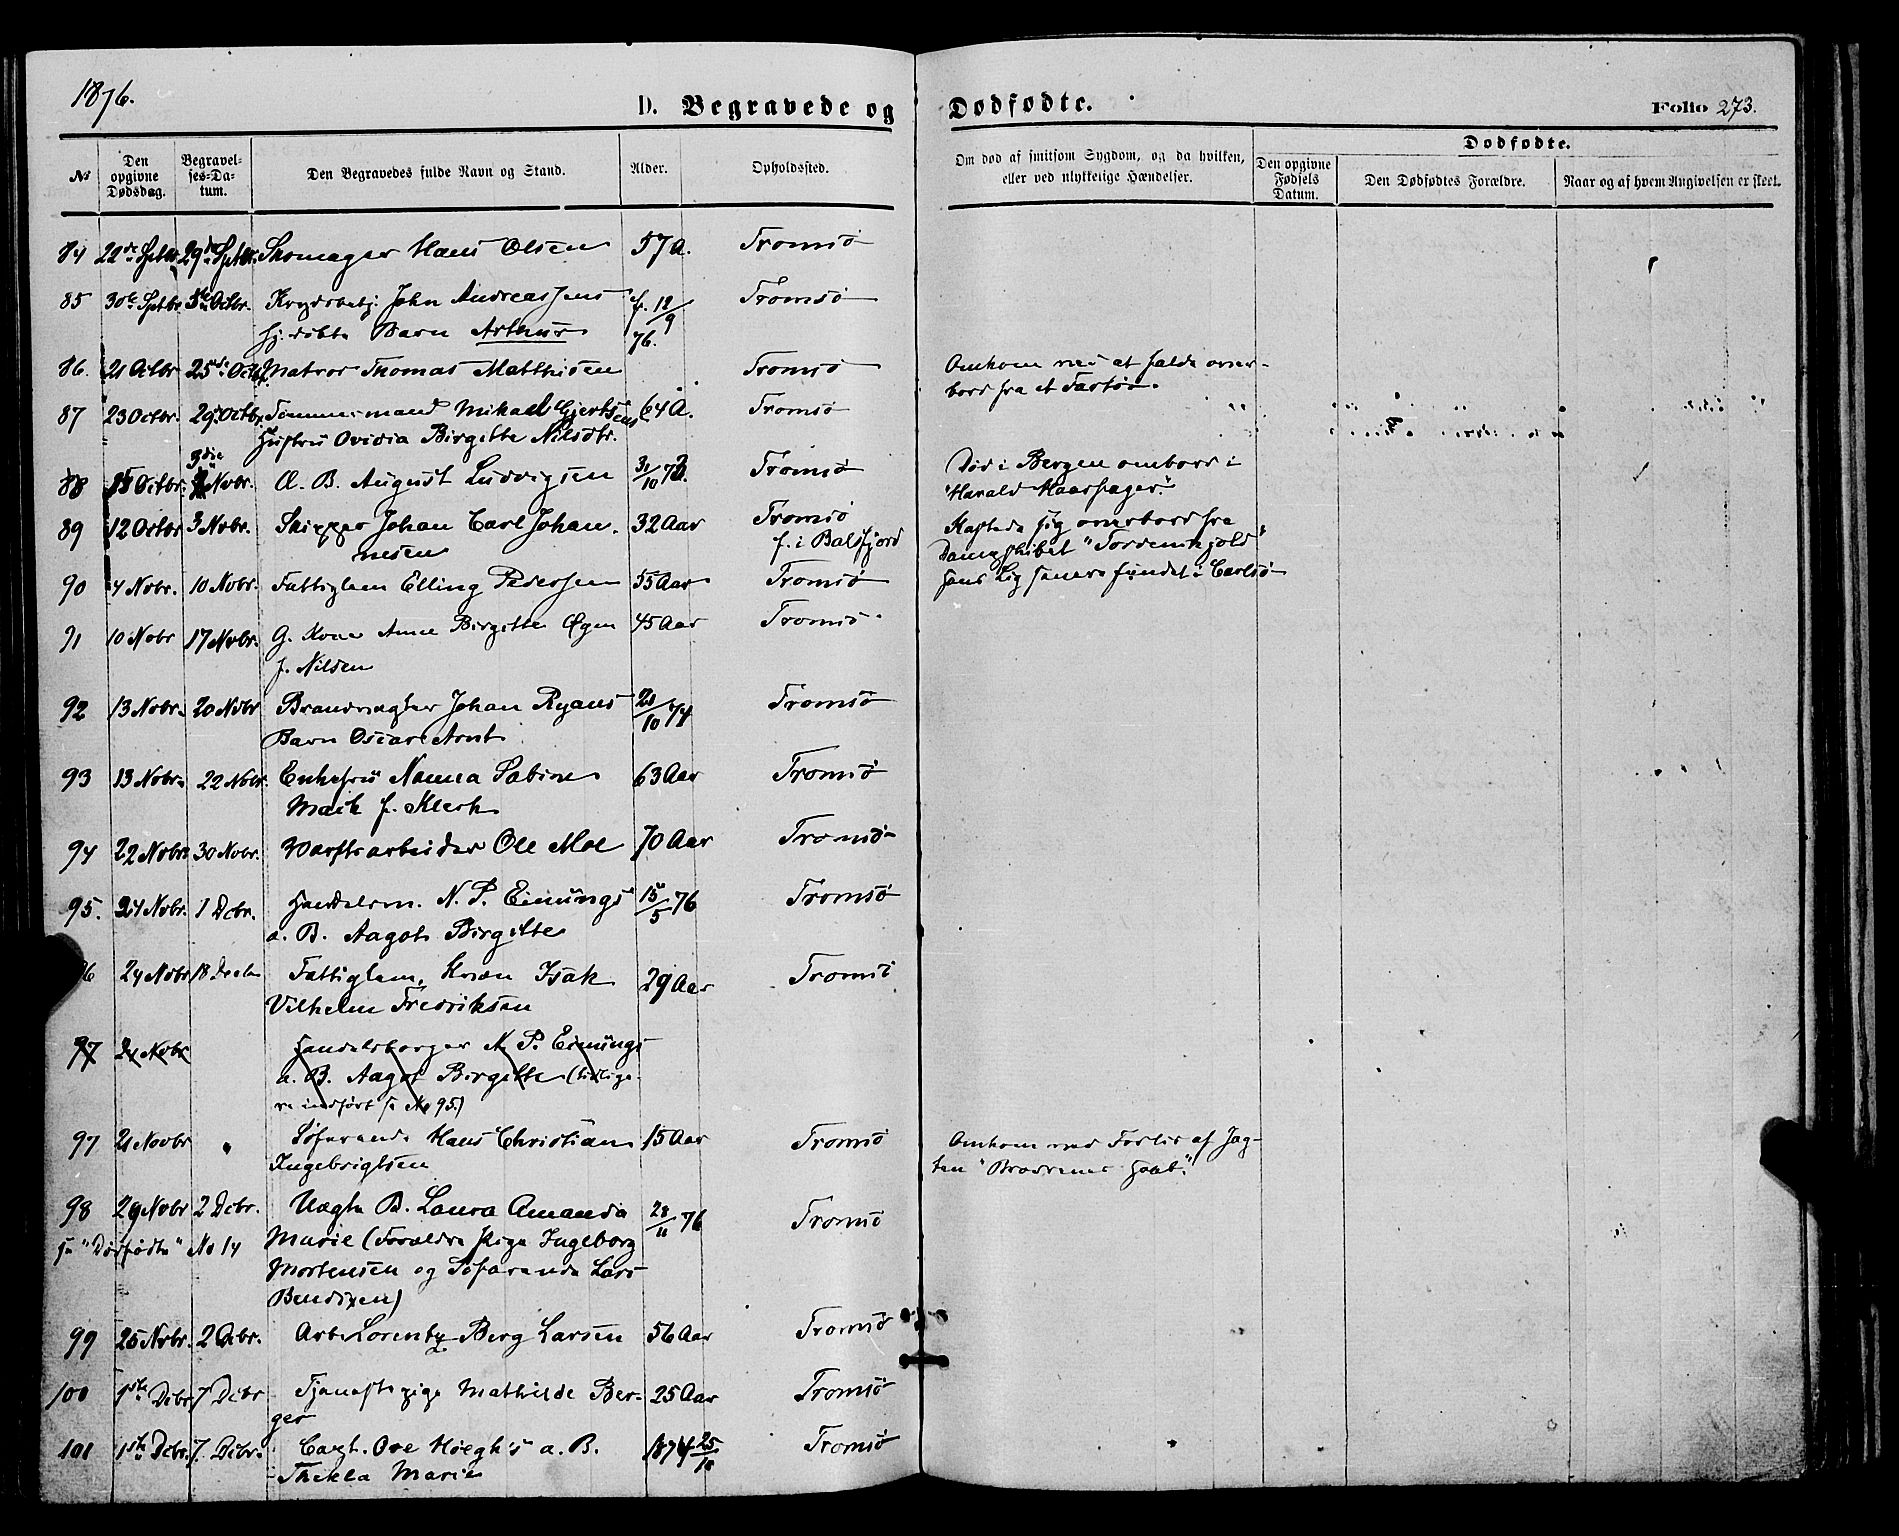 1876.
D. Begravede og Dødfødte.
Folio 273.
№
Den opgivne Dødsdag.
Begravelses-Datum.
Den Begravedes fulde Navn og Stand.
Alder.
Opholdssted.
Om død af smitsom Sygdom, og da hvilken, eller ved ulykkelige Hændelser.
Dødfødte.
Den opgivne Fødsels Datum.
Den Dødfødtes Forældre.
Naar og af hvem Angivelsen er skeet.
84 22de Septbr. 29de Septbr. Skomager Hans Olsen 57 A. Tromsø
85 30te Septbr. 5te Octbr. John Andreassens f. 18/9 Tromsø
Barn Arthur 76.
86. 21 Octbr 25de Octbr. Matros Thomas Matthisen Tromsø Omkom ved at falde over-
bord fra et Fartøi.
87 23 Octbr. 29 Octbr. Tømmermand Mikael Gjertsens 64 A. Tromsø
Hustru Ovidia Birgitte Nilsdtr.
3die
88 15 Octbr. Novbr. A. B. August Ludvigsen 31/10 73. Tromsø Død i Bergen ombord i
"Harald Haarfager."
89 12 Octbr 3 Novbr. Skipper Johan Carl Johan- 32 Aar Tromsø Kastede sig overbord fra
nesen f. i Balsfjord Dampskibet "Tordenskjold"
90 4 Novbr. 10 Novbr. Fattiglem Elling Pedersen 55 Aar Tromsø hans Lig senere fundet i Carlsø
91 10 Novbr 17 Novbr. G. Kone Anne Birgitte 45 Aar Tromsø
f. Nilsen
92 13 Novbr. 20 Novbr Brandvagter Johan Ryans 21/10 74 Tromsø
Barn Oscar Arnt
93 13 Novbr. 22 Novbr. Enkefru Nanna Sabine 63 Aar Tromsø
Mack f. Klerk
94 22 Novbr. 30 Novbr. Værftsarbeider Ole Moe 70 Aar Tromsø
95. 24 Novbr. 1 Dcbr. Handelsm. N. P. Einungs 15/5 76 Tromsø
a. B. Aagot Birgitte
96 24 Novbr 18 Decbr Fattiglem, Kvæn Isak 29 Aar Tromsø
Vilhelm Fredriksen
97 24 Novbr Handelsborger N. P. Einungs
a. B. Aagot Birgitte (tidlige-
re indført se No 95.)
97 21 Novbr " Søfarende Hans Christian 15 Aar Tromsø Omkom ved Forlis af Jag-
Ingebrigtsen ten "Brødrenes Haab."
98 29 Novbr 2 Dcbr. Uægte B. Laura Amanda 28/11 76 Tromsø
se "Dødfødte" No 14 Marie (Forældre Pige Ingeborg
Mortensen og Søfarende Lars
Bendixen)
99 25 Novbr. 2 Dcbr. Arb. Lorentz Berg Larsen 56 Aar Tromsø
100 1ste Dcbr. 7 Dcbr Tjenestepige Mathilde Ber- 25 Aar Tromsø
ger
101 1ste Dcbr. 7. Dcbr. Capt. Ove Høegh's a. B. 1874 25/10 Tromsø
Thekla Marie